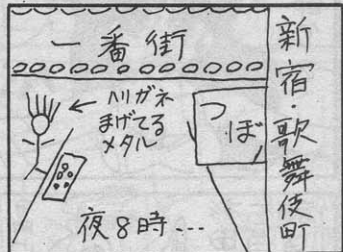 新宿・歌舞伎町
一番街
ハリガネ
まげてる
メタル
つぼ
夜8時…